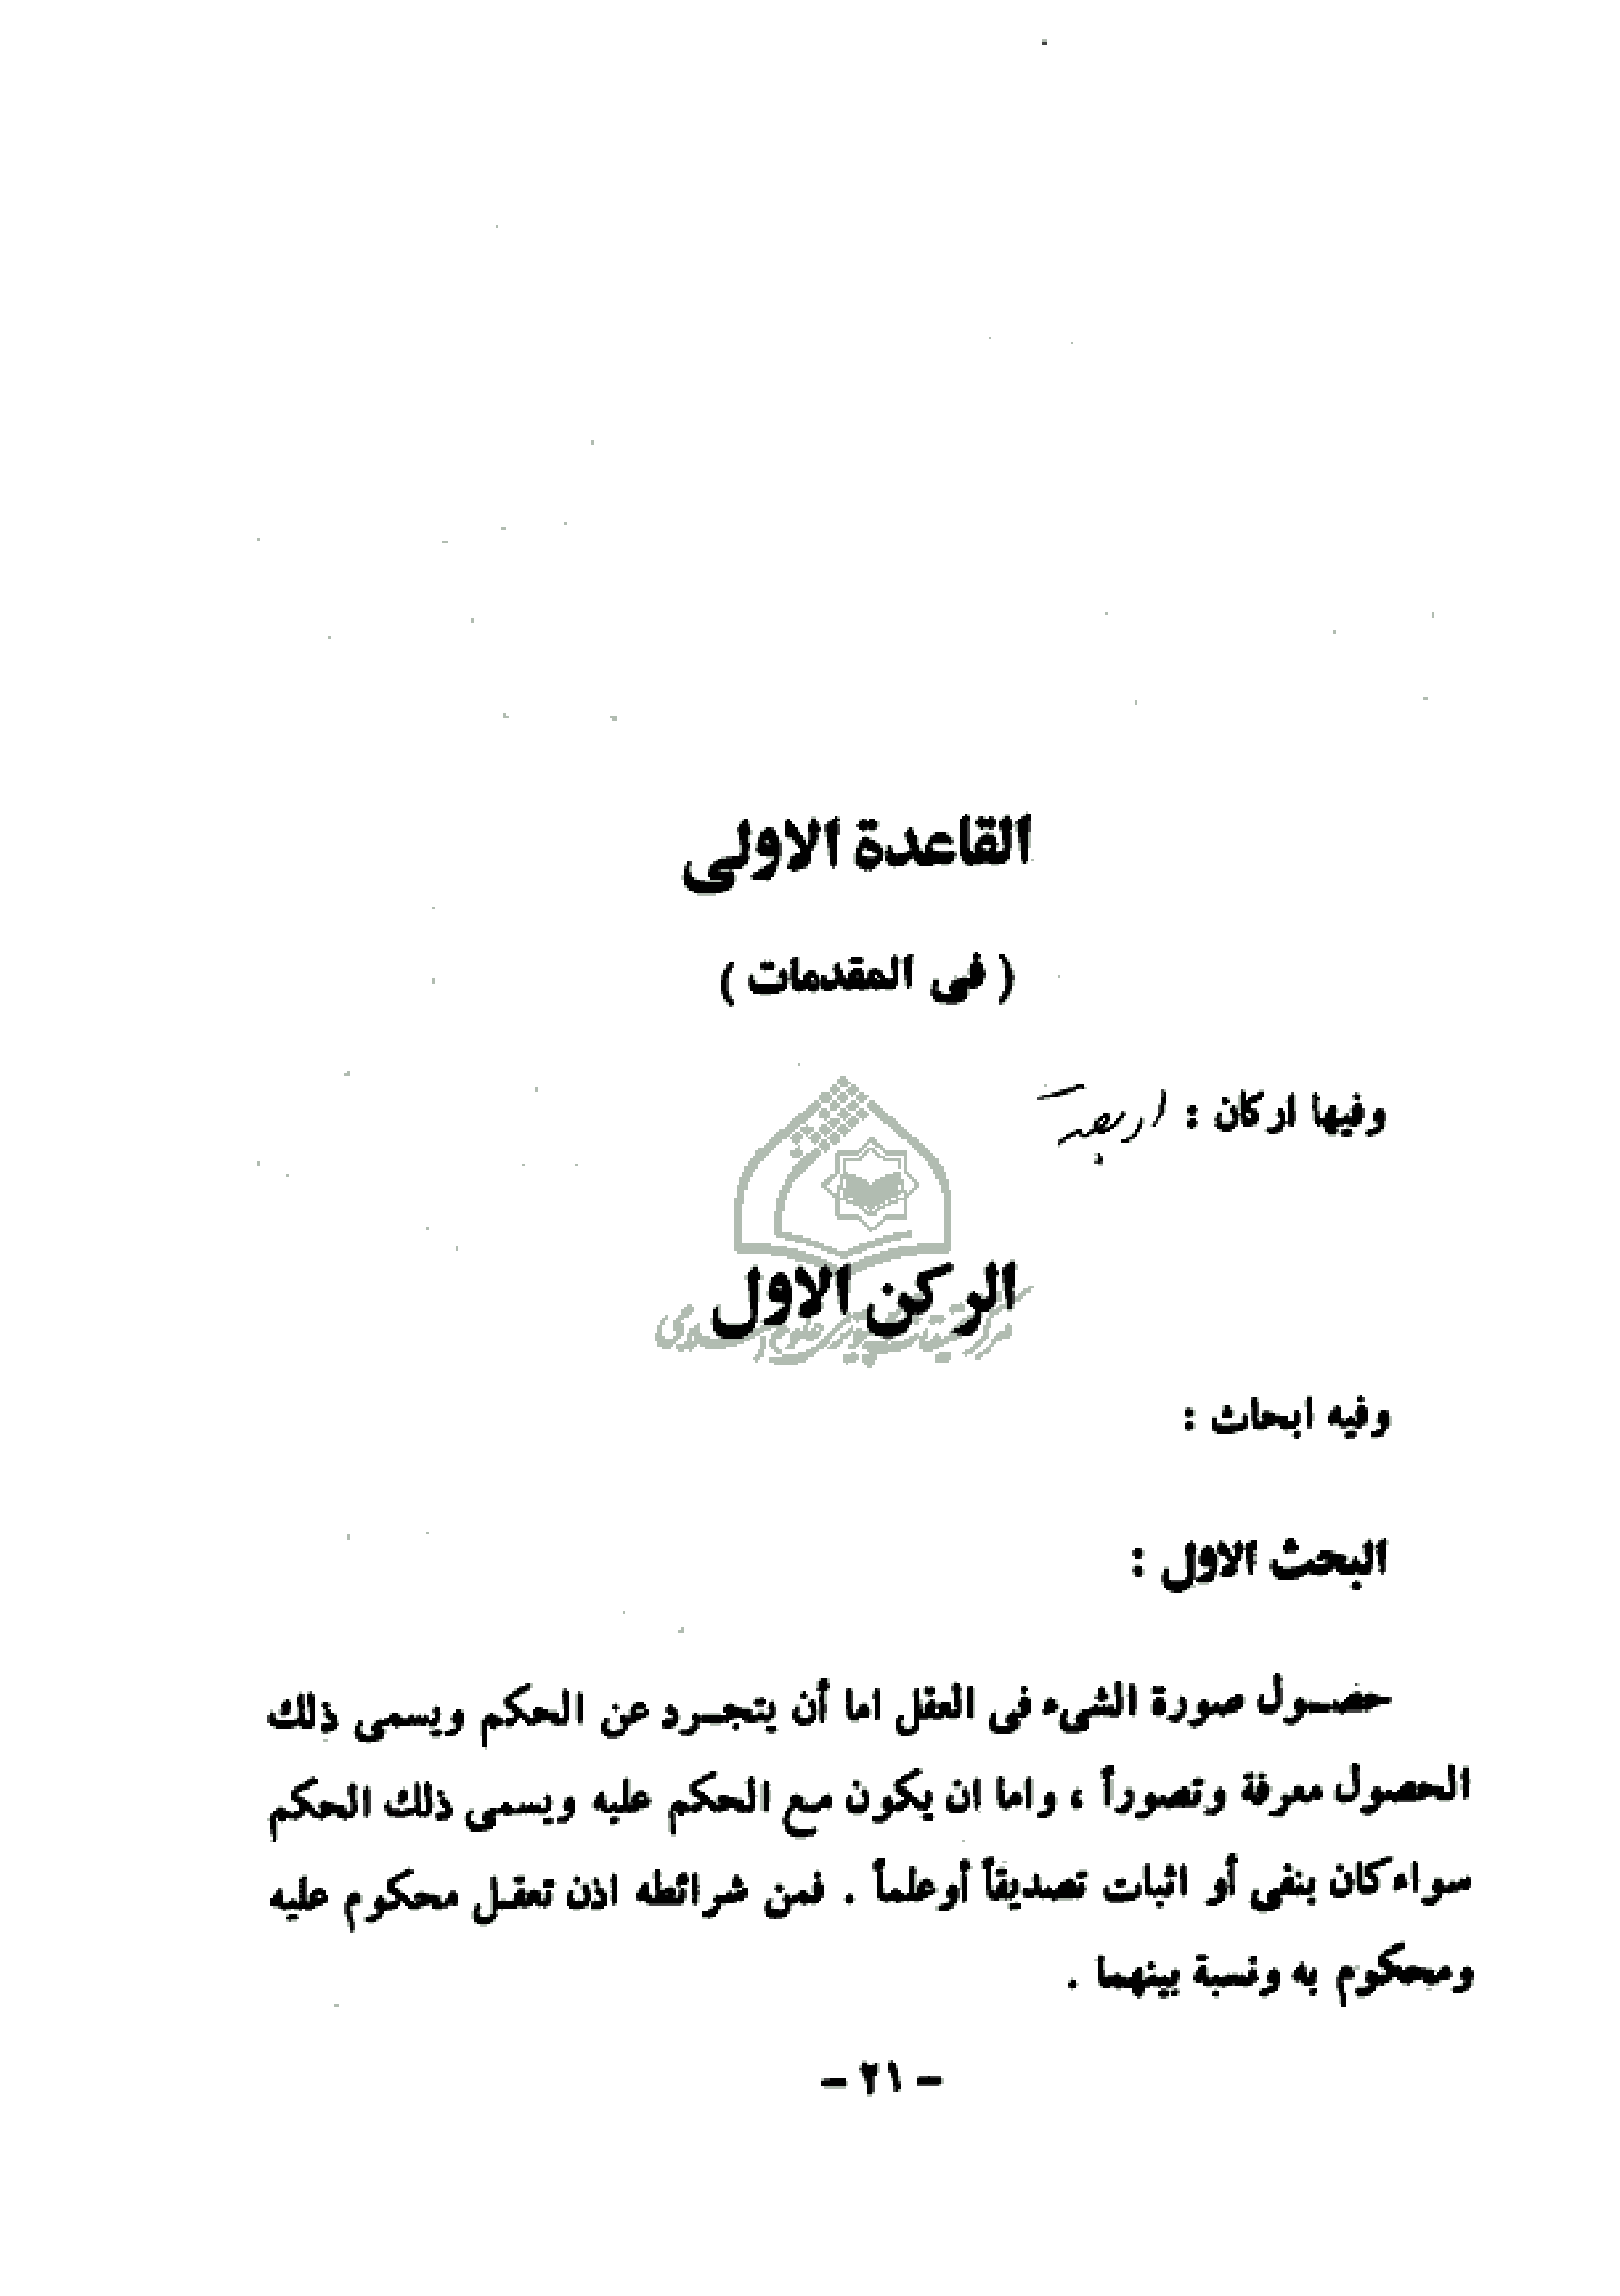 القاعدة الاولى
( فى المقدمات )
وفيها اركان : اربعة
الركن الاول
مركز تحقيقات كامپيوتری علوم اسلامی
وفيه ابحاث :
البحث الاول :
حصــول صورة الشىء فى العقل اما أن يتجــرد عن الحكم ويسمى ذلك
الحصول معرفة وتصوراً ، واما ان يكون مـع الحكم عليه ويسمى ذلك الحكم
سواء كان بنفى أو اثبات تصديقاً أوعلماً . فمن شرائطه اذن تعقـل محكوم عليه
ومحكوم به ونسبة بينهما .
– ٢١ –